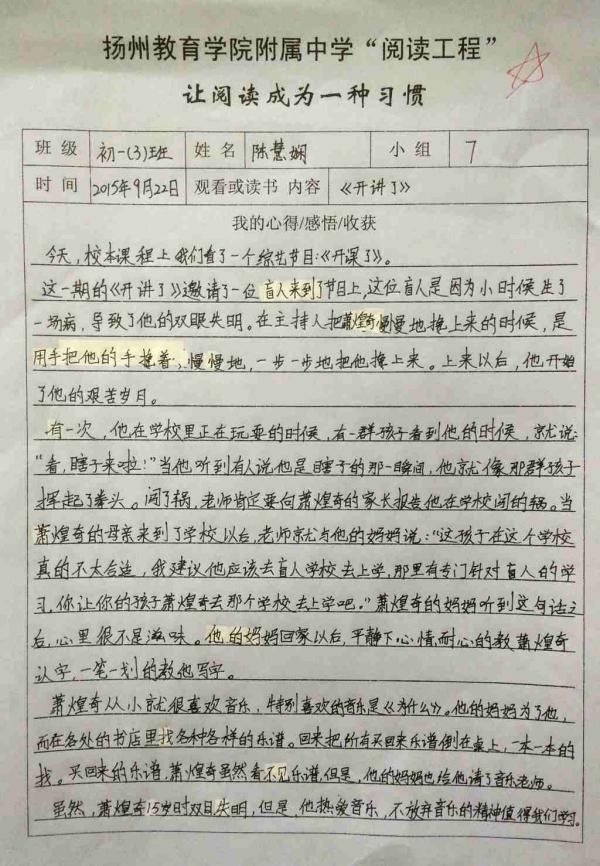 扬州教育学院附属中学“阅读工程”
让阅读成为一种习惯
班 级 初一(3)班 姓 名 陈慧娴 小 组 7
时 间 2015年9月22日 观看或读书 内容 《开讲了》
我的心得/感悟/收获
今天,校本课程上我们看了一个综艺节目:《开课了》。
这一期的《开讲了》邀请了一位盲人来到了节目上,这位盲人是因为小时候生了
一场病,导致了他的双眼失明。在主持人把萧煌奇慢慢地搀上来的时候,是
用手把他的手搀着,慢慢地,一步一步地把他搀上来。上来以后,他开始
了他的艰苦岁月。
有一次,他在学校里正在玩耍的时候,有一群孩子看到他的时候,就说:
“看,瞎子来啦!”当他听到有人说他是瞎子的那一瞬间,他就像那群孩子
挥起了拳头。闯了祸,老师肯定要向萧煌奇的家长报告他在学校闯的祸。当
萧煌奇的母亲来到了学校以后,老师就与他的妈妈说:“这孩子在这个学校
真的不太合适,我建议他应该去盲人学校去上学,那里有专门针对盲人的学
习,你让你的孩子萧煌奇去那个学校去上学吧。”萧煌奇的妈妈听到这句话之
后,心里很不是滋味。他的妈妈回家以后,平静下心情,耐心的教萧煌奇
认字,一笔一划的教他写字。
萧煌奇从小就很喜欢音乐,特别喜欢的音乐是《为什么》。他的妈妈为了他,
而在各处的书店里找各种各样的乐谱。回来把所有买回来乐谱倒在桌上,一本一本的
找。买回来的乐谱,萧煌奇虽然看不见乐谱,但是,他的妈妈也给他请了音乐老师。
虽然,萧煌奇15岁时双目失明,但是,他热爱音乐,不放弃音乐的精神值得我们学习。